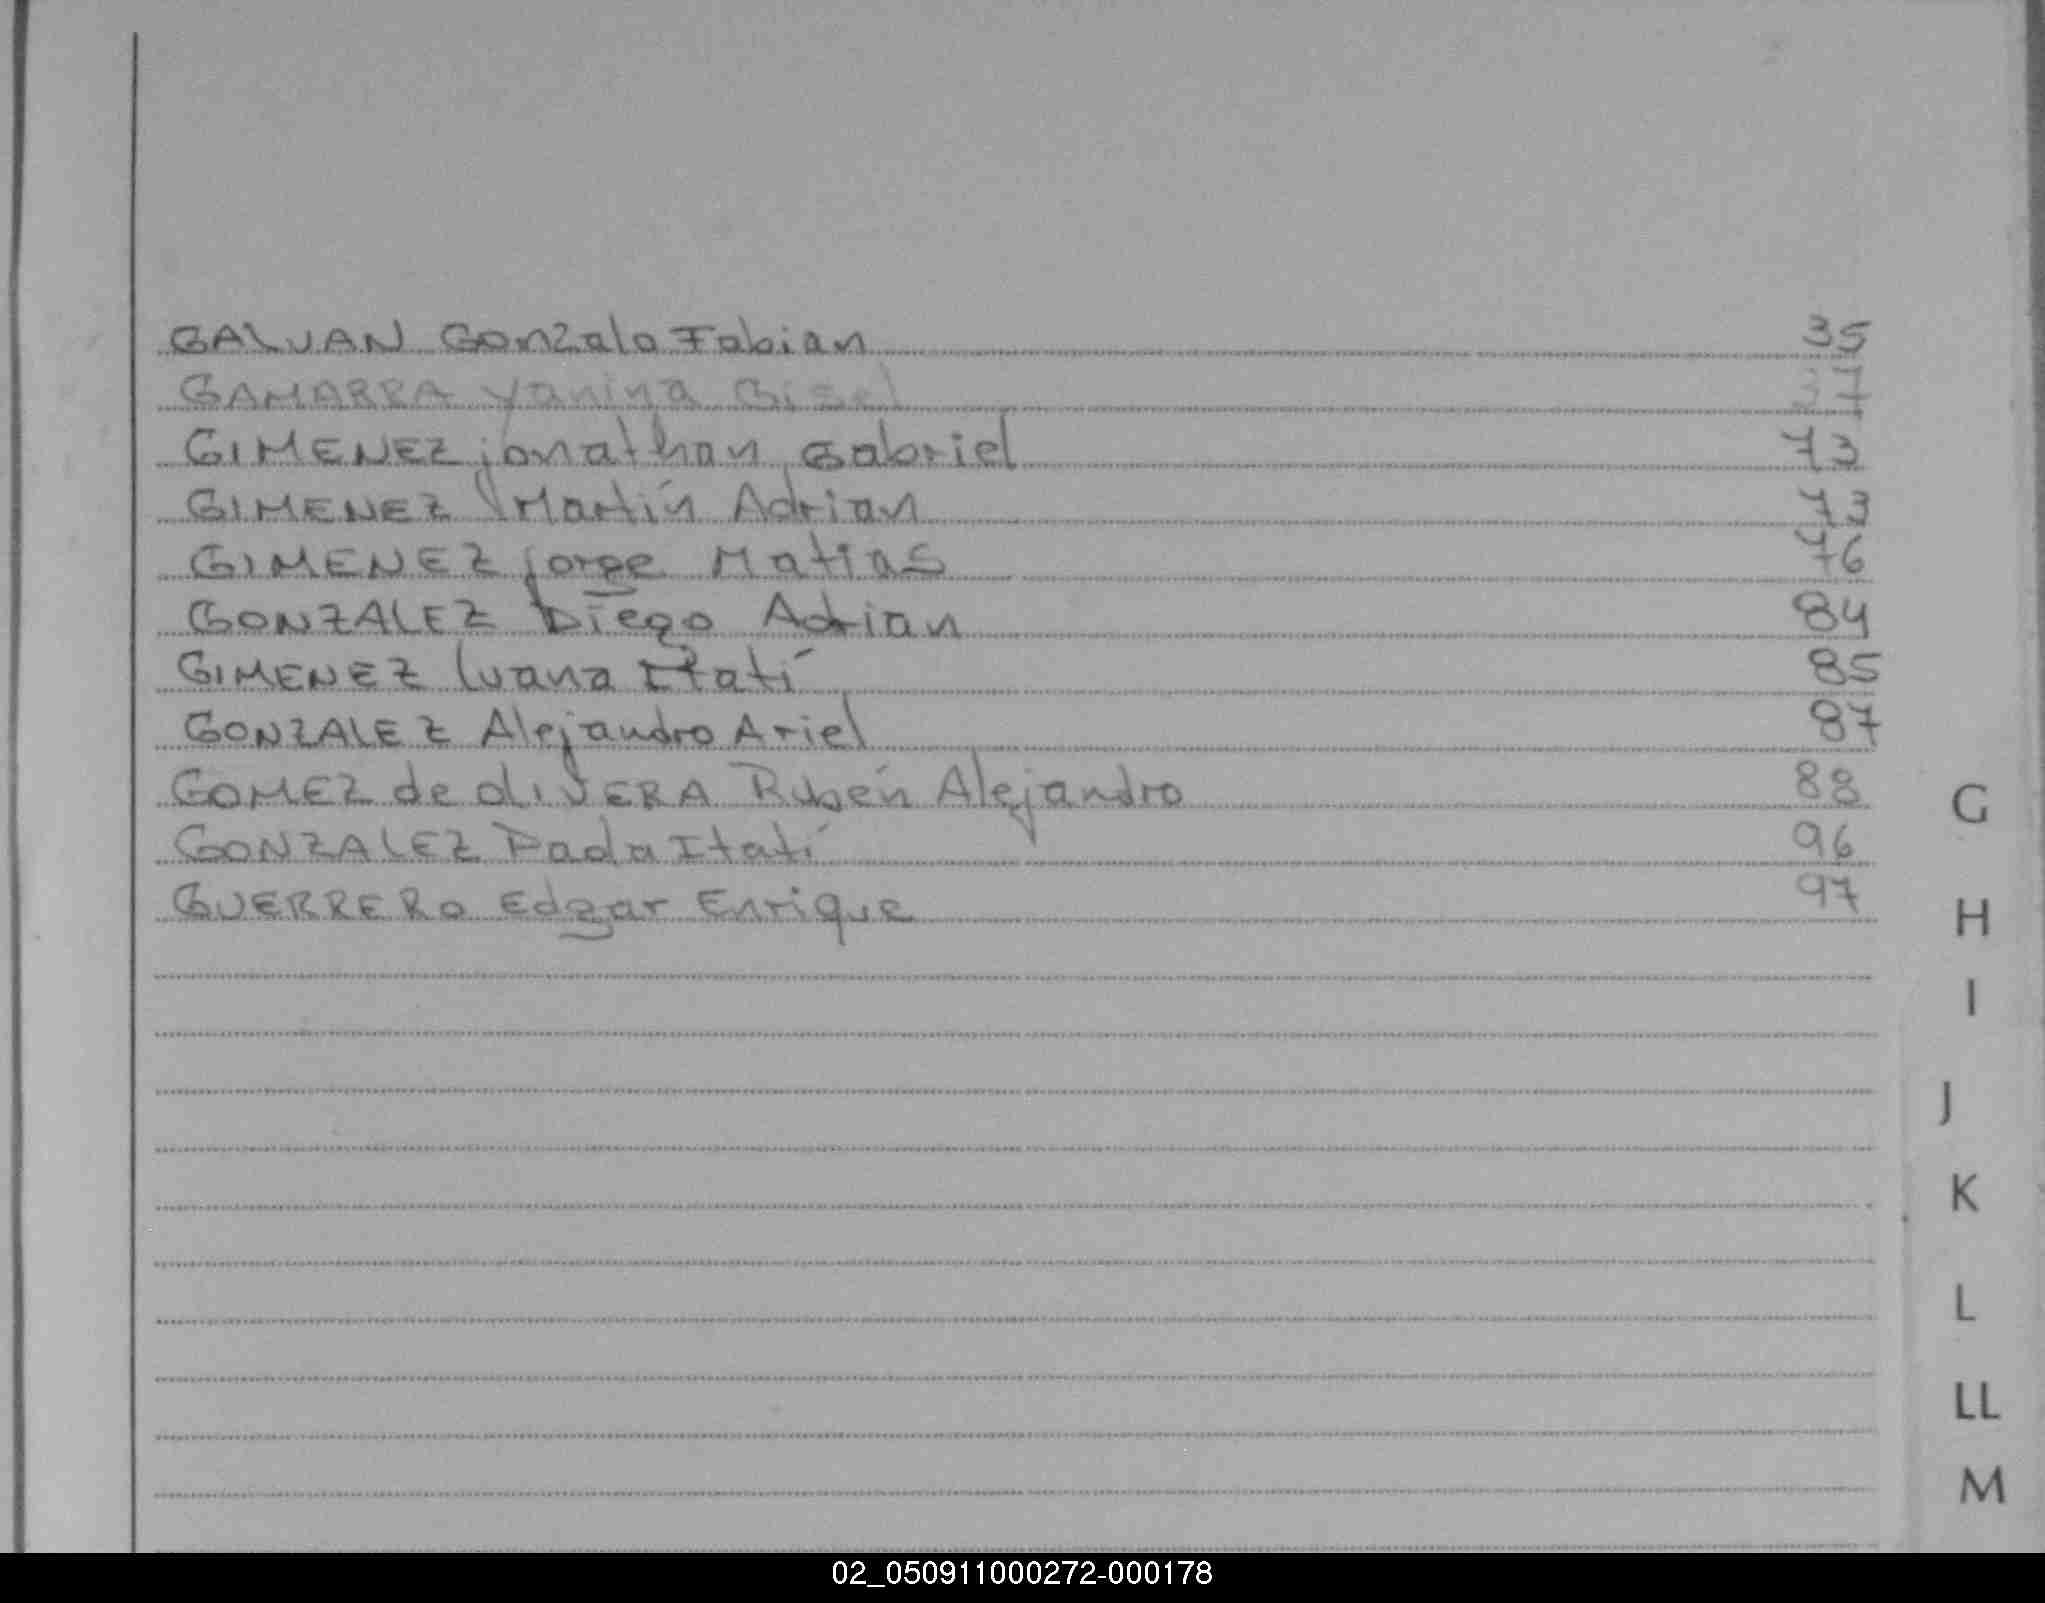 GALVAN Gonzalo Fabian 35
GAMARRA Yanina Gisel 37
GIMENEZ jonathan Gabriel 73
GIMENEZ Martín Adrian 73
GIMENEZ jorge Matias 76
GONZALEZ Diego Adrian 84
GIMENEZ Luana Itatí 85
GONZALEZ Alejandro Ariel 87
GOMEZ de oliVERA Rubén Alejandro 88
GONZALEZ Itatí 96
GUERRERO Edgar Enrique 97
G
H
I
J
K
L
LL
M
02_050911000272-000178